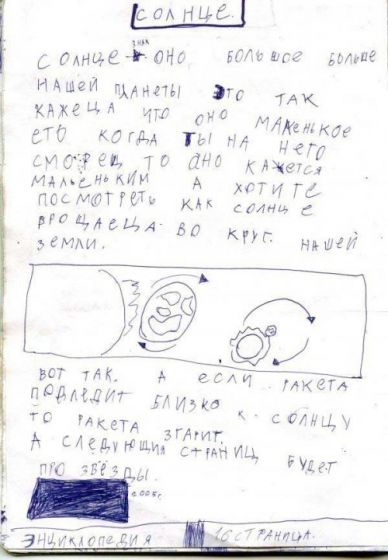 СОЛНЦЕ.
СОЛНЦЕ знак ОНО БОЛЬШОЕ БОЛЬШЕ
НАШЕЙ ПЛАНЕТЫ ЭТО ТАК
КАЖЕЦА ЧТО ОНО МАЛЕНЬКОЕ
ЕТО КОГДА ТЫ НА НЕГО
СМОРЕЩ ТО ОНО КАЖЕТСЯ
МАЛЬЕНЬКИМ А ХОТИТЕ
ПОСМОТРЕТЬ КАК СОЛНЦЕ
ВРОЩАЕЦА ВО КРУГ НАШЕЙ
ЗЕМЛИ.
ВОТ ТАК. А ЕСЛИ РАКЕТА
ПОДЛЕДИТ БЛИЗКО К СОЛНЦУ
ТО РАКЕТА ЗГАРИТ.
А СЛЕДУЮЩИЯ СТРАНИЦ БУДЕТ
ПРО ЗВЁЗДЫ.
2005г.
ЭНЦИКЛОПЕДИЯ 16 СТРАНИЦА.